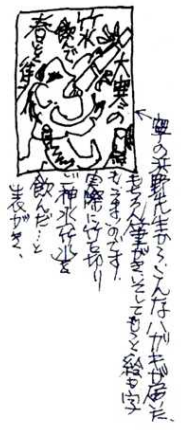 大寒の
竹水
飲んで
春を待つ
こんなハガキが届いた、
もちろん筆がき、そしてもっと絵も字
もうまいのです！
実際に竹を切り
ご神水竹水を
飲んだ…と
表がき、